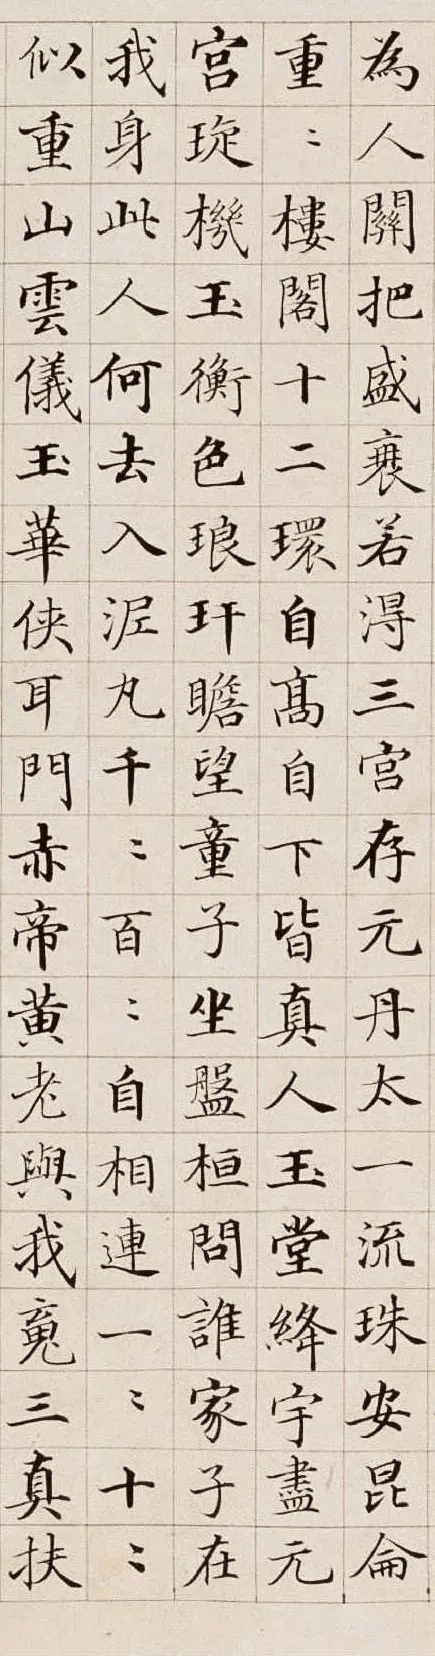 為人關把盛衰若淂三宫存元丹太一流珠安昆侖
重〻樓閣十二環自髙自下皆真人玉堂絳宇盡元
宫琁機玉衡色琅玕瞻望童子坐盤桓問誰家子在
我身此人何去入泥丸千〻百〻自相連一〻十〻
似重山雲儀玉華侠耳門赤帝黄老與我䰟三真扶